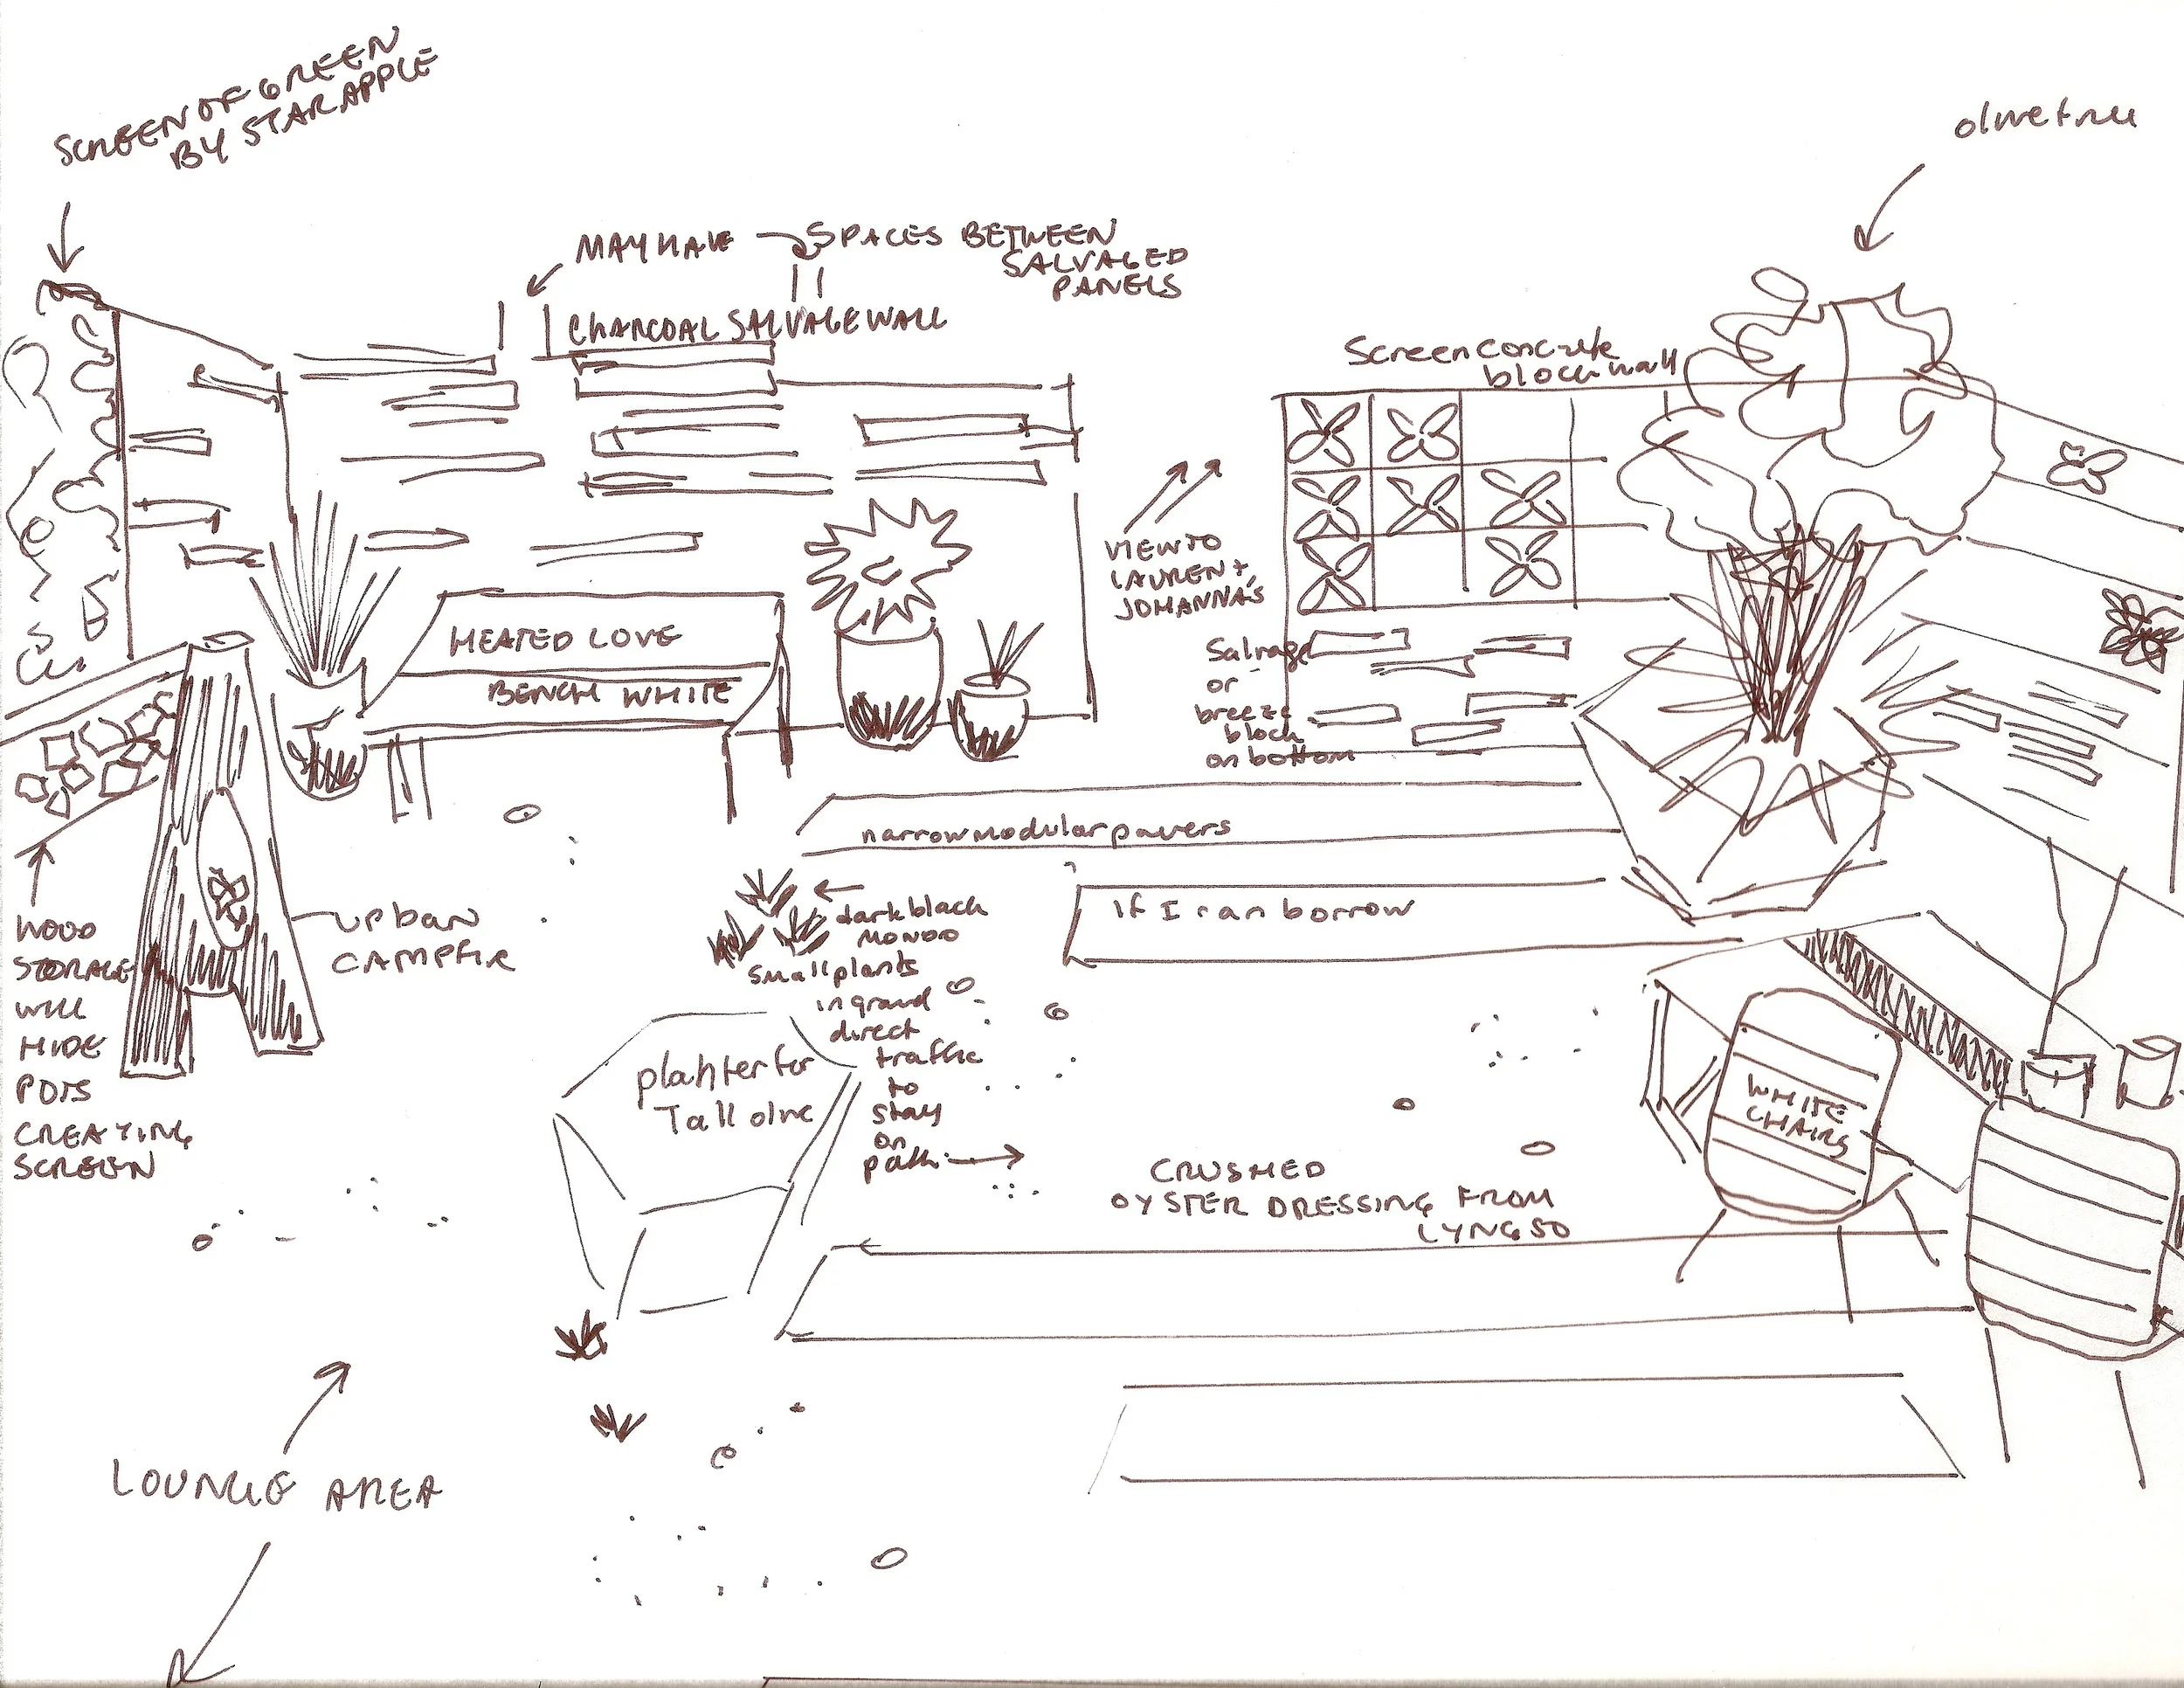 SCREEN OF GREEN
BY STAR APPLE
olive tree
MAY HAVE
SPACES BETWEEN
SALVAGED
PANELS
CHARCOAL SALVAGE WALL
Screen concrete
block wall
VIEW TO
LAUREN +
JOHANNA'S
HEATED LOVE
BENCH WHITE
Salvage
or
breeze
block
on bottom
narrow modular pavers
if I can borrow
dark black
MONDO
small plants
in gravel
direct
traffic
to
stay
on
path
WOOD
STORAGE
WILL
HIDE
POTS
CREATING
SCREEN
URBAN
CAMPFIRE
planter for
Tall olive
WHITE
CHAIRS
CRUSHED
OYSTER DRESSING FROM
LYNGSO
LOUNGE AREA